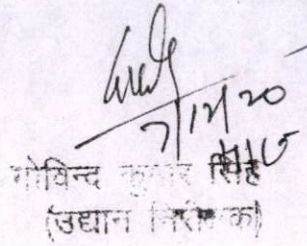 7/12/20
गोविन्द कुमार सिंह
(उद्यान निरीक्षक)